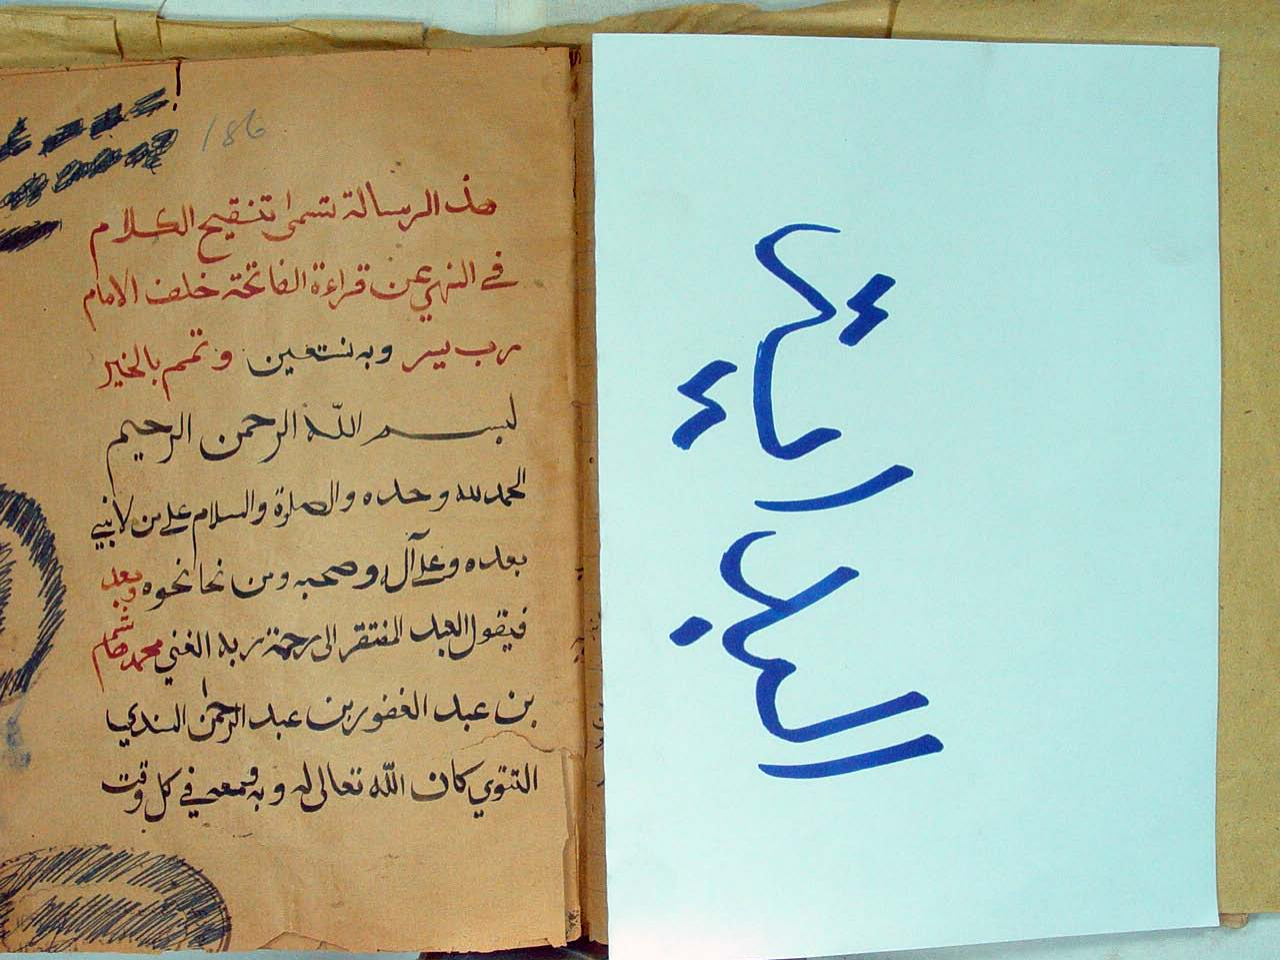 البداية
186
هذه الرسالة تسمى تنقيح الكلام
في النهي عن قراءة الفاتحة خلف الامام
رب يسر وبه نستعين وتمم بالخير
بسم الله الرحمن الرحيم
الحمد لله وحده والصلوة والسلام على من لا نبي
بعده وعلى آله وصحبه ومن نحا نحوه وبعد
فيقول العبد المفتقر الى رحمة ربه الغني محمد هاشم
بن عبد الغفور بن عبد الرحمن السندي
التتوي كان الله تعالى له وبه ومعه في كل وقت